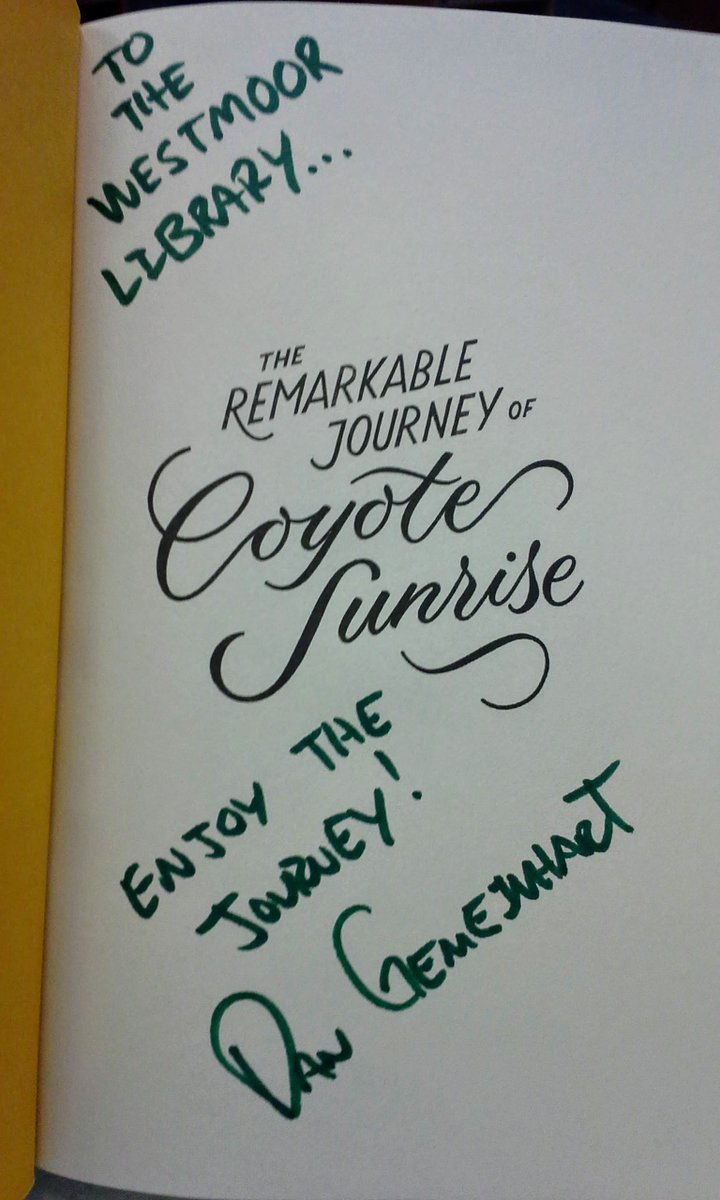 TO
THE
WESTMOOR
LIBRARY...
THE
REMARKABLE
JOURNEY OF
Coyote
Sunrise
ENJOY THE
JOURNEY!
DAN GEMEINHART